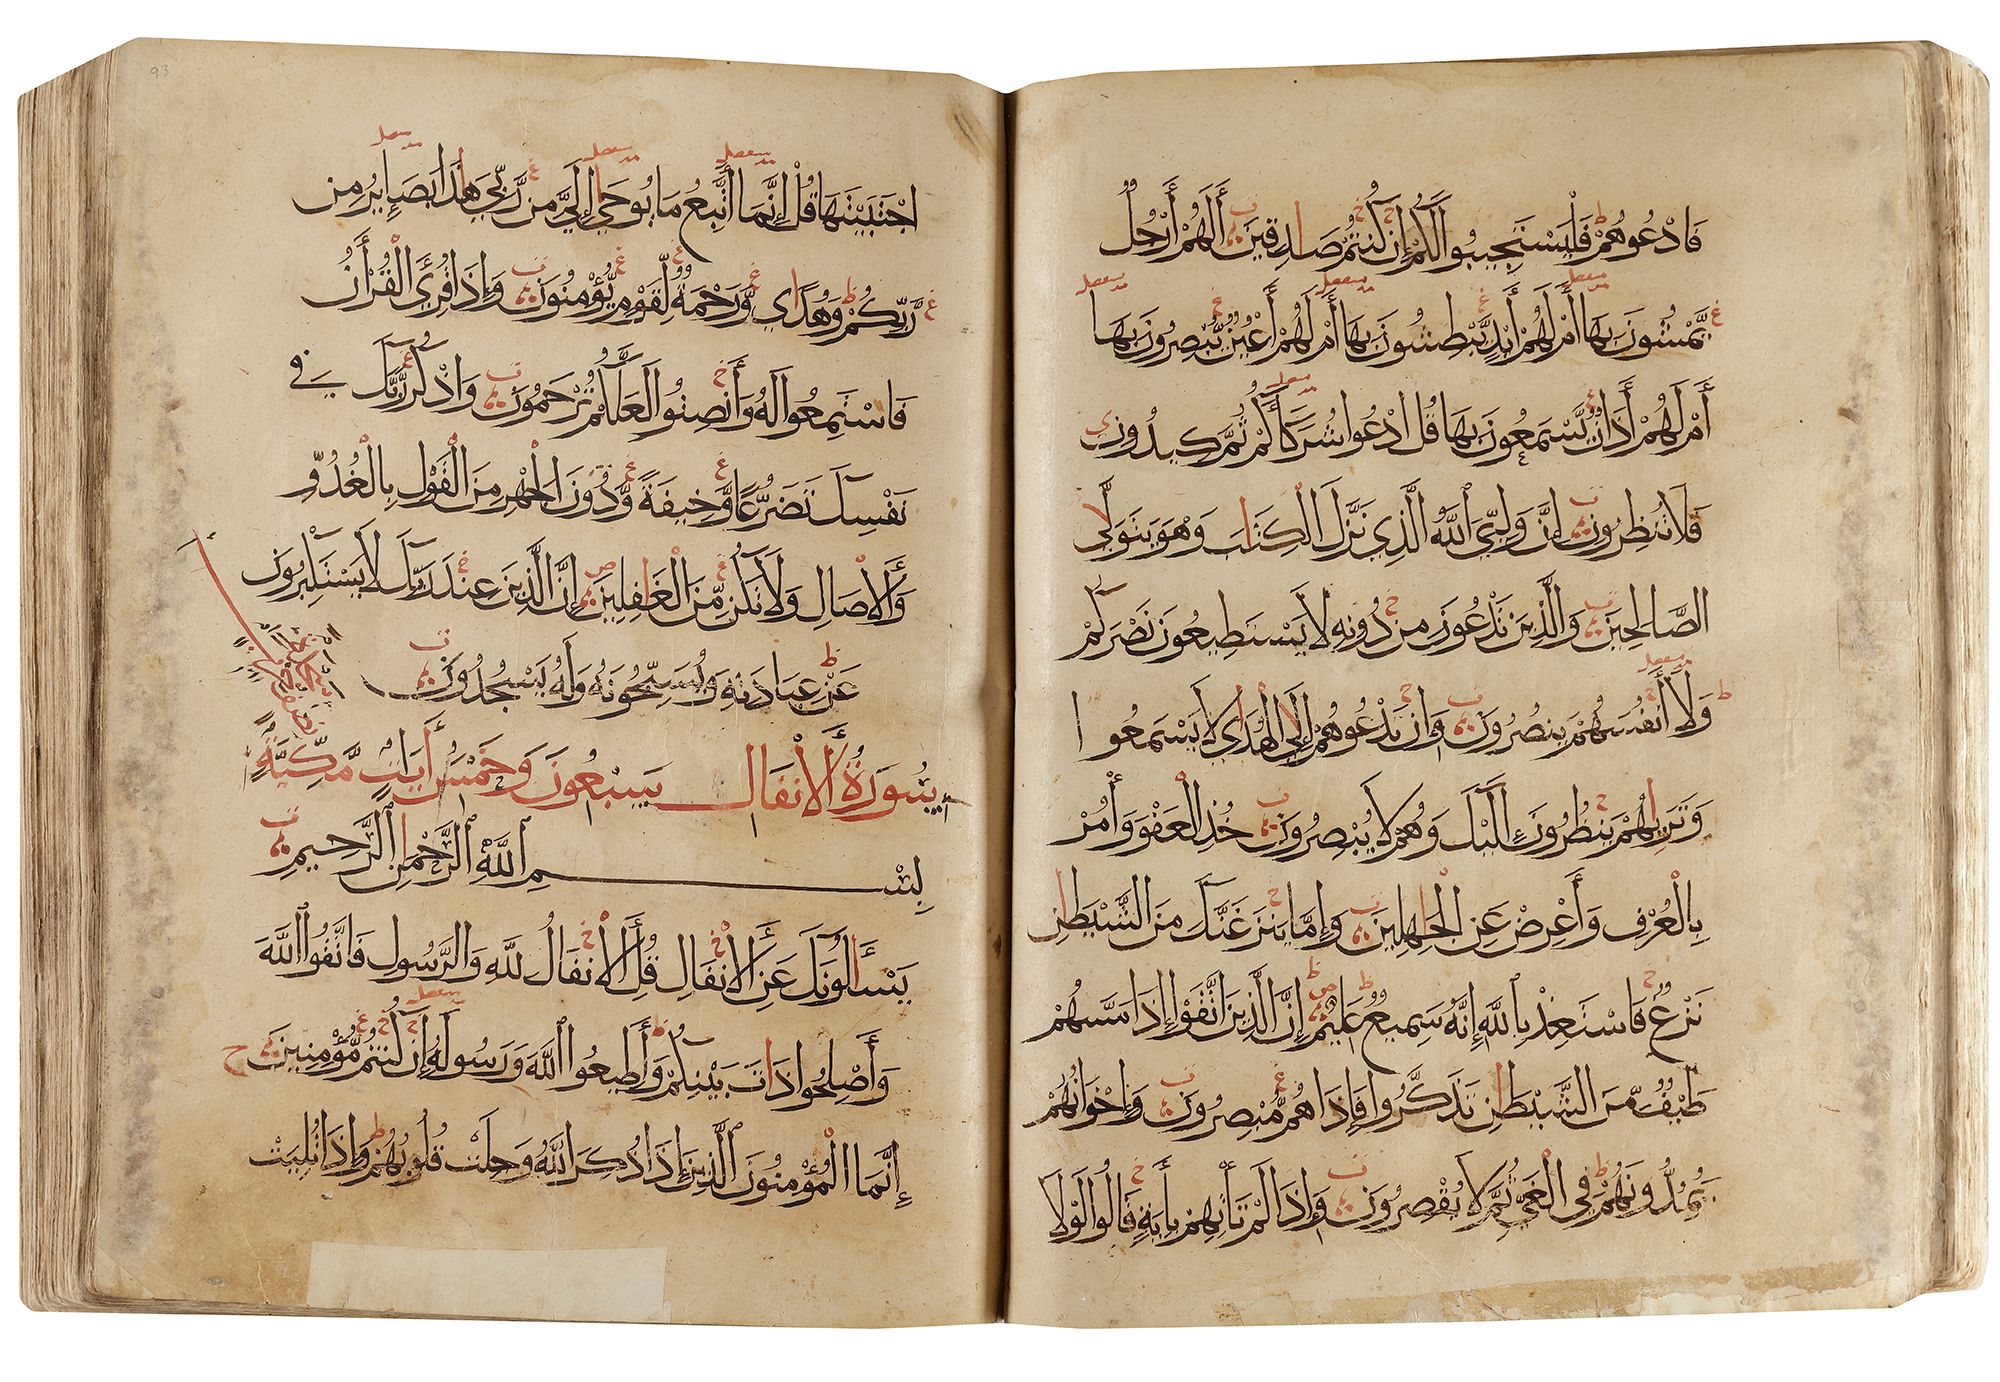 فَادْعُوهُمْ فَلْيَسْتَجِيبُوا لَكُمْ إِنْ كُنْتُمْ صَادِقِينَ أَلَهُمْ أَرْجُلٌ
يَمْشُونَ بِهَا أَمْ لَهُمْ أَيْدٍ يَبْطِشُونَ بِهَا أَمْ لَهُمْ أَعْيُنٌ يُبْصِرُونَ بِهَا
أَمْ لَهُمْ أَذَانٌ يَسْمَعُونَ بِهَا قُلِ ادْعُوا شُرَكَآءَكُمْ ثُمَّ كِيدُونِ
فَلَا تُنْظِرُونِ إِنَّ وَلِيِّيَ اللَّهُ الَّذِي نَزَّلَ الْكِتَابَ وَهُوَ يَتَوَلَّى
الصَّالِحِينَ وَالَّذِينَ تَدْعُونَ مِنْ دُونِهِ لَا يَسْتَطِيعُونَ نَصْرَكُمْ
وَلَا أَنْفُسَهُمْ يَنْصُرُونَ وَإِنْ تَدْعُوهُمْ إِلَى الْهُدَى لَا يَسْمَعُوا
وَتَرَاهُمْ يَنْظُرُونَ إِلَيْكَ وَهُمْ لَا يُبْصِرُونَ خُذِ الْعَفْوَ وَأْمُرْ
بِالْعُرْفِ وَأَعْرِضْ عَنِ الْجَاهِلِينَ وَإِمَّا يَنْزَغَنَّكَ مِنَ الشَّيْطَانِ
نَزْغٌ فَاسْتَعِذْ بِاللَّهِ إِنَّهُ سَمِيعٌ عَلِيمٌ إِنَّ الَّذِينَ اتَّقَوْا إِذَا مَسَّهُمْ
طَيْفٌ مِّنَ الشَّيْطَانِ تَذَكَّرُوا فَإِذَا هُمْ مُّبْصِرُونَ وَإِخْوَانُهُمْ
يَمُدُّونَهُمْ فِي الْغَيِّ ثُمَّ لَا يُقْصِرُونَ وَإِذَا لَمْ تَأْتِهِمْ بِآيَةٍ قَالُوا لَوْلَا
اجْتَبَيْتَهَا قُلْ إِنَّمَا أَتَّبِعُ مَا يُوحَى إِلَيَّ مِنْ رَّبِّي هَذَا بَصَائِرُ مِنْ
رَّبِّكُمْ وَهُدًى وَّرَحْمَةٌ لِّقَوْمٍ يُّؤْمِنُونَ وَإِذَا قُرِئَ الْقُرْآنُ
فَاسْتَمِعُوا لَهُ وَأَنْصِتُوا لَعَلَّكُمْ تُرْحَمُونَ وَاذْكُرْ رَّبَّكَ فِي
نَفْسِكَ تَضَرُّعًا وَّخِيفَةً وَّدُونَ الْجَهْرِ مِنَ الْقَوْلِ بِالْغُدُوِّ
وَالْأَصَالِ وَلَا تَكُنْ مِّنَ الْغَافِلِينَ إِنَّ الَّذِينَ عِنْدَ رَبِّكَ لَا يَسْتَكْبِرُونَ
عَنْ عِبَادَتِهِ وَيُسَبِّحُونَهُ وَلَهُ يَسْجُدُونَ
سُورَةُ الْأَنْفَالِ سَبْعُونَ وَخَمْسُ أَيَاتٍ مَّكِّيَّةٍ
بِسْمِ اللَّهِ الرَّحْمَانِ الرَّحِيمِ
يَسْأَلُونَكَ عَنِ الْأَنْفَالِ قُلِ الْأَنْفَالُ لِلَّهِ وَالرَّسُولِ فَاتَّقُوا اللَّهَ
وَأَصْلِحُوا ذَاتَ بَيْنِكُمْ وَأَطِيعُوا اللَّهَ وَرَسُولَهُ إِنْ كُنْتُمْ مُّؤْمِنِينَ
إِنَّمَا الْمُؤْمِنُونَ الَّذِينَ إِذَا ذُكِرَ اللَّهُ وَجِلَتْ قُلُوبُهُمْ وَإِذَا تُلِيَتْ
93